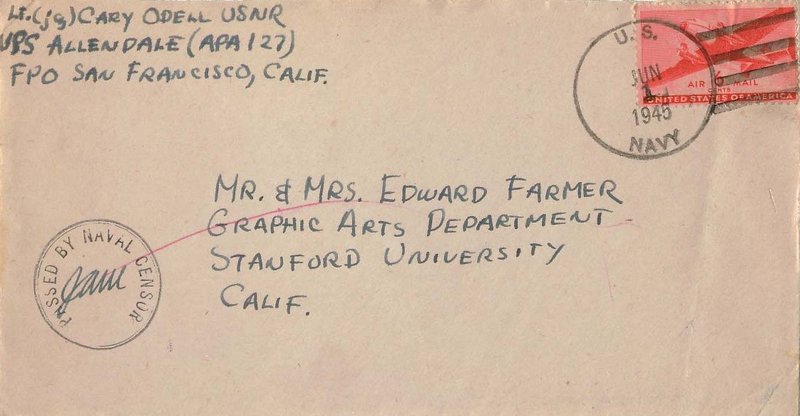 Lt. (jg) CARY ODELL USNR
UPS ALLENDALE (APA 127)
FPO SAN FRANCISCO, CALIF.
U.S.
JUN
1
1945
NAVY
AIR 6 MAIL
CENTS
UNITED STATES OF AMERICA
MR. & MRS. EDWARD FARMER
GRAPHIC ARTS DEPARTMENT
STANFORD UNIVERSITY
CALIF.
PASSED BY NAVAL CENSOR